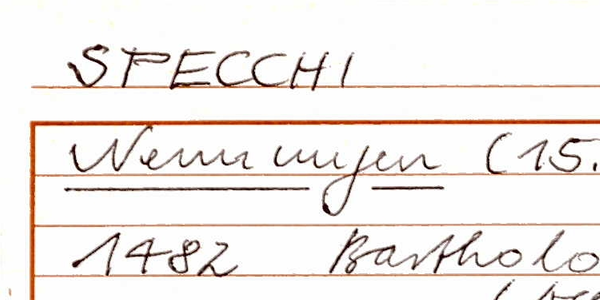 SPECCHI
Nennungen (15.
1482 Bartholo